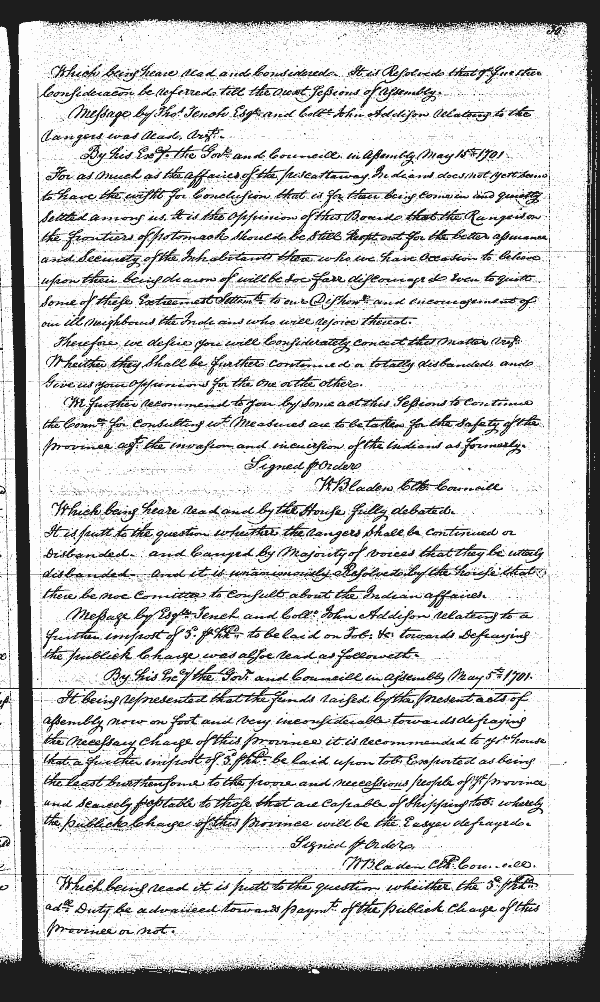 30
Which being heare read and Considered. It is Resolved that ye further
Consideracon be referred till the next Sessions of Assembly.
Message by Tho: Tench Esqr and Collo John Addison relateing to the
Rangers was Read. Vizt.
By his Excy the Govr and Councill in Assembly May 15th 1701.
For as much as the Affaires of the piscattaway Indians does not yett seem
to have the wisht for Conclusion that is for their being come in and quietly
settled among us. It is the Oppinion of this Board that the Rangers on
the frontiers of potomack should be still kept out for the better assurance
and Security of the Inhabitants there who we have Occasion to believe
upon their being drawn of will be soe farr discouraged Even to quitt
some of these Extreemest Settlemts to our Dishonr and encouragement of
our ill neighbours the Indians who will rejoice thereat.
Therefore we desire you will Considerately concert this matter Vizt.
Wheither they shall be further Continued or totally disbanded and
Give us your Oppinions for the One or the other.
We further recommend to you by some act this Sessions to Continue
the Commee for Consulting wt Measures are to be taken for the safety of the
province agt the invasion and incursion of the Indians as formerly.
Signed p Order
W Bladen Clk Councill
Which being heare read and by the House fully debated.
It is putt to the question wheither the Rangers shall be continued or
Disbanded. and Carryed by Majority of Voices that they be utterly
disbanded. and it is unanimously Resolved by the house that
there be noe Comittee to Consult about the Indian affaires.
Message by Esqr Tench and Collo John Addison relateing to a
further impost of 3d p hhd to be laid on Tob: &c towards Defraying
the publick Charge was alsoe read as followeth.
By his Excy the Govr and Councill in Assembly May 5th 1701.
It being represented that the funds raised by the present acts of
assembly now on foot and very inconsiderable towards defraying
the necessary Charge of this province it is recommended to yr house
that a further impost of 3d p hhd be laid upon tob: Exported as being
the least burthensome to the poore and necessious people of ye province
and scarcely
to those that are Capable of Shipping tob: whereby
the publick Charge of this province will be the Easyer defrayed.
Signed p Order
W Bladen Clk Councill.
Which being read it is putt to the question wheither the 3d p hhd
addll Duty be advanced towards paymt of the publick Charge of this
province or not.